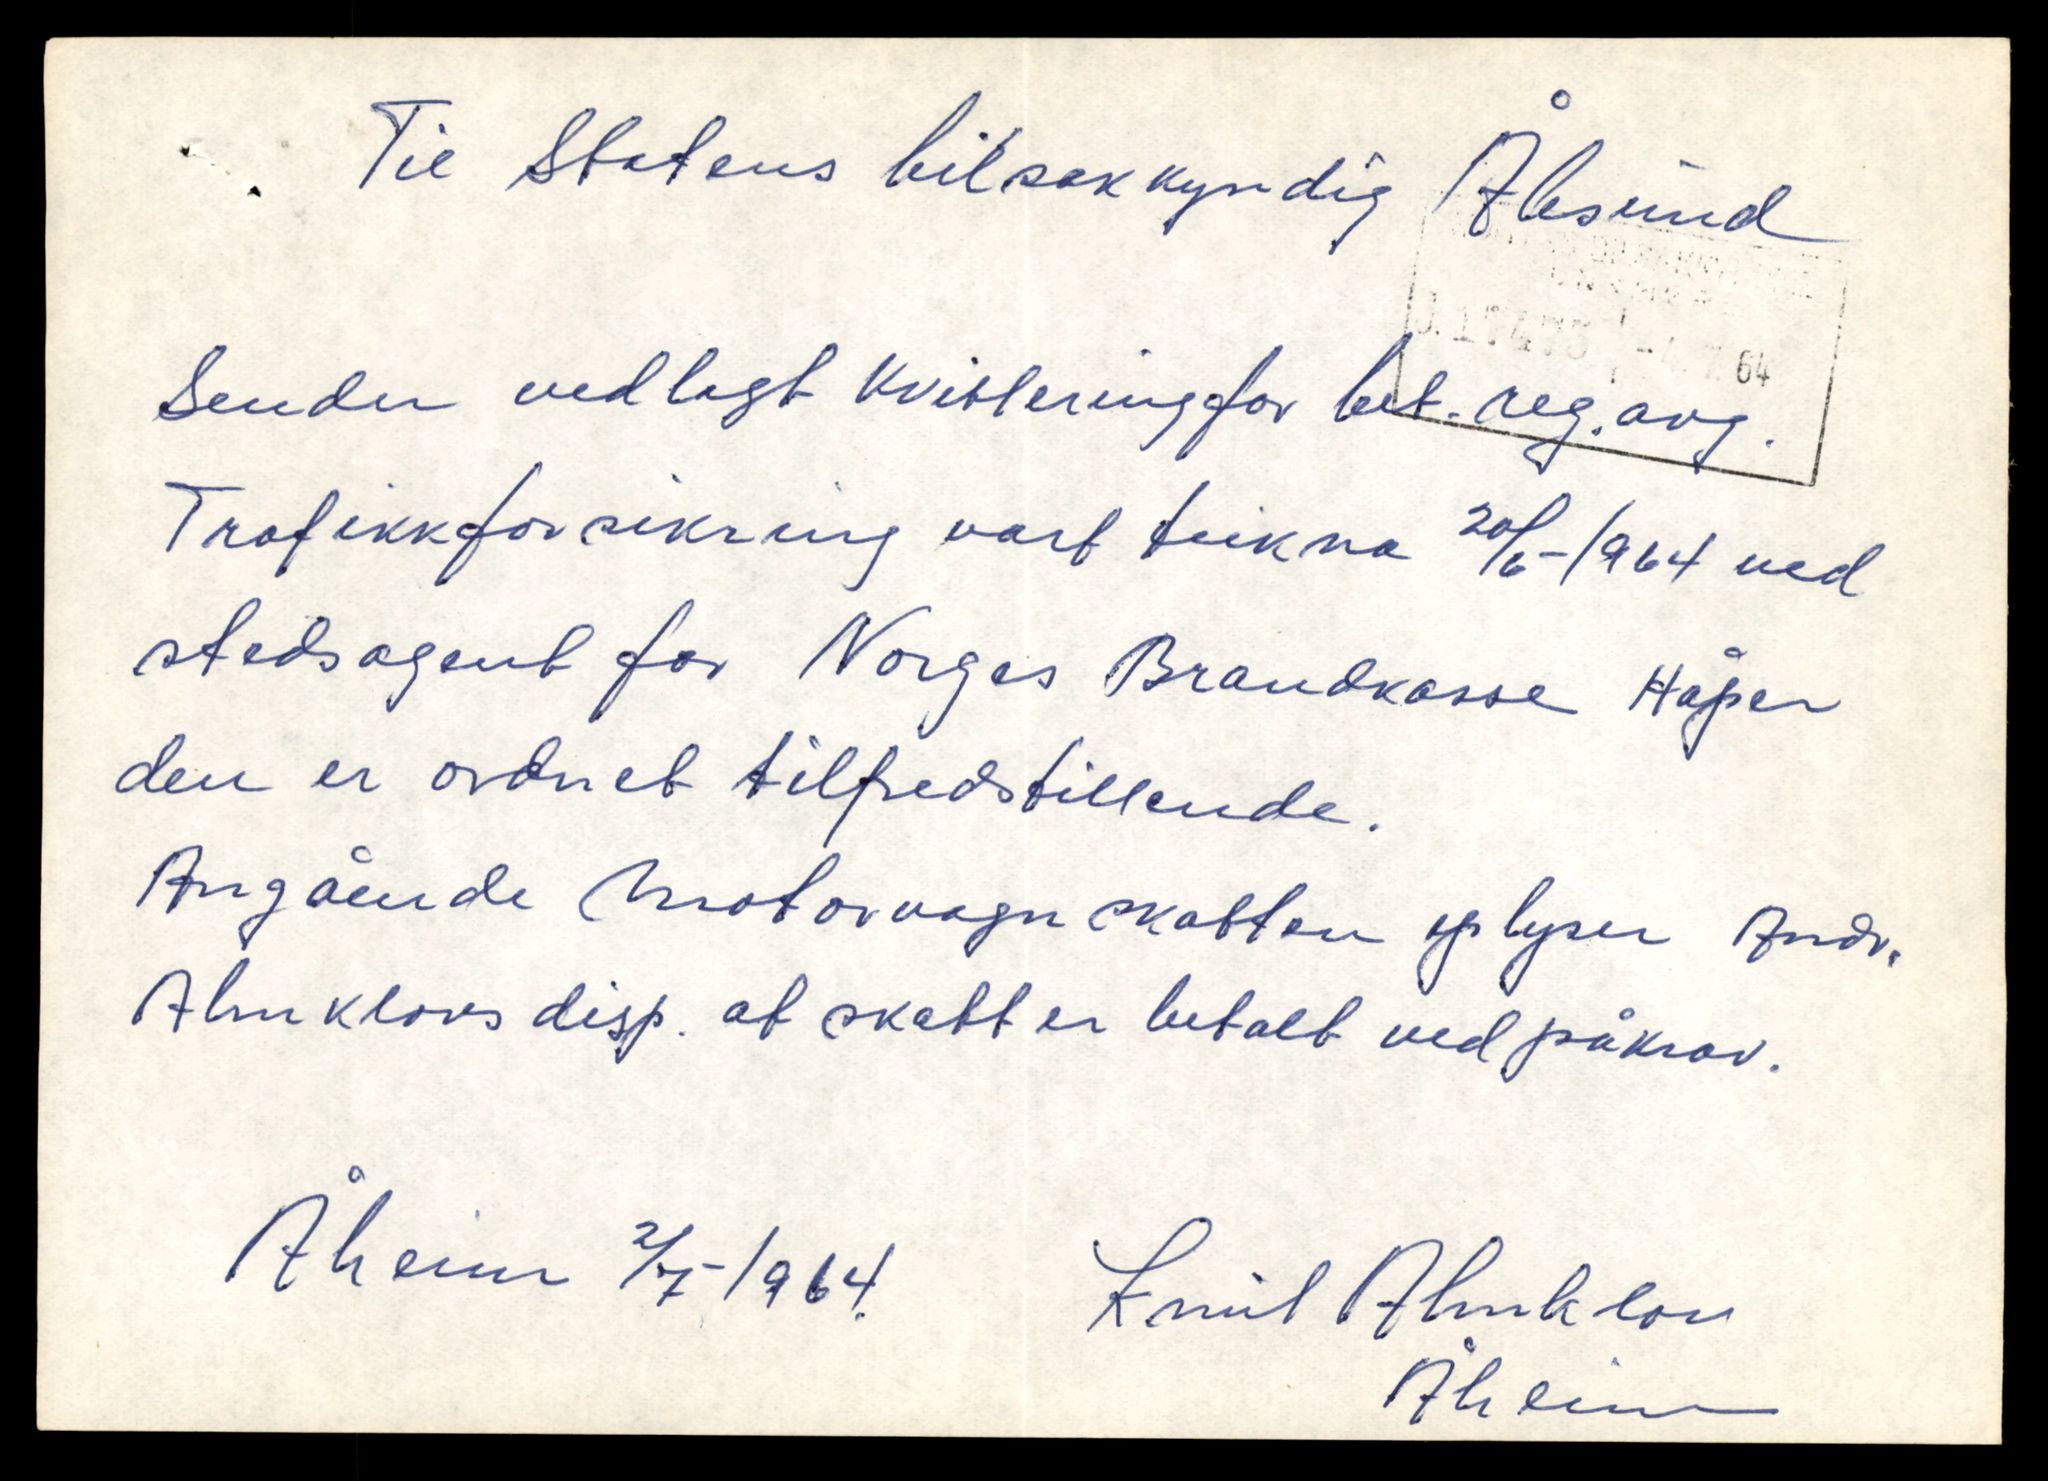 Til Statens bilsakkyndig Ålesund
64
Sender vedlagt kvittering for bet. reg. avg.
Trafikkforsikring vart teikna 20/6-1964 ved
stedsagent for Norges Brandkasse Håper
den er ordnet tilfredstillende.
Angående Motorvognskatten oplyser Andr.
Almklovs disp. at skatt er betalt ved påkrav.
Åheim 2/7-1964.
Emil Almklov
Åheim